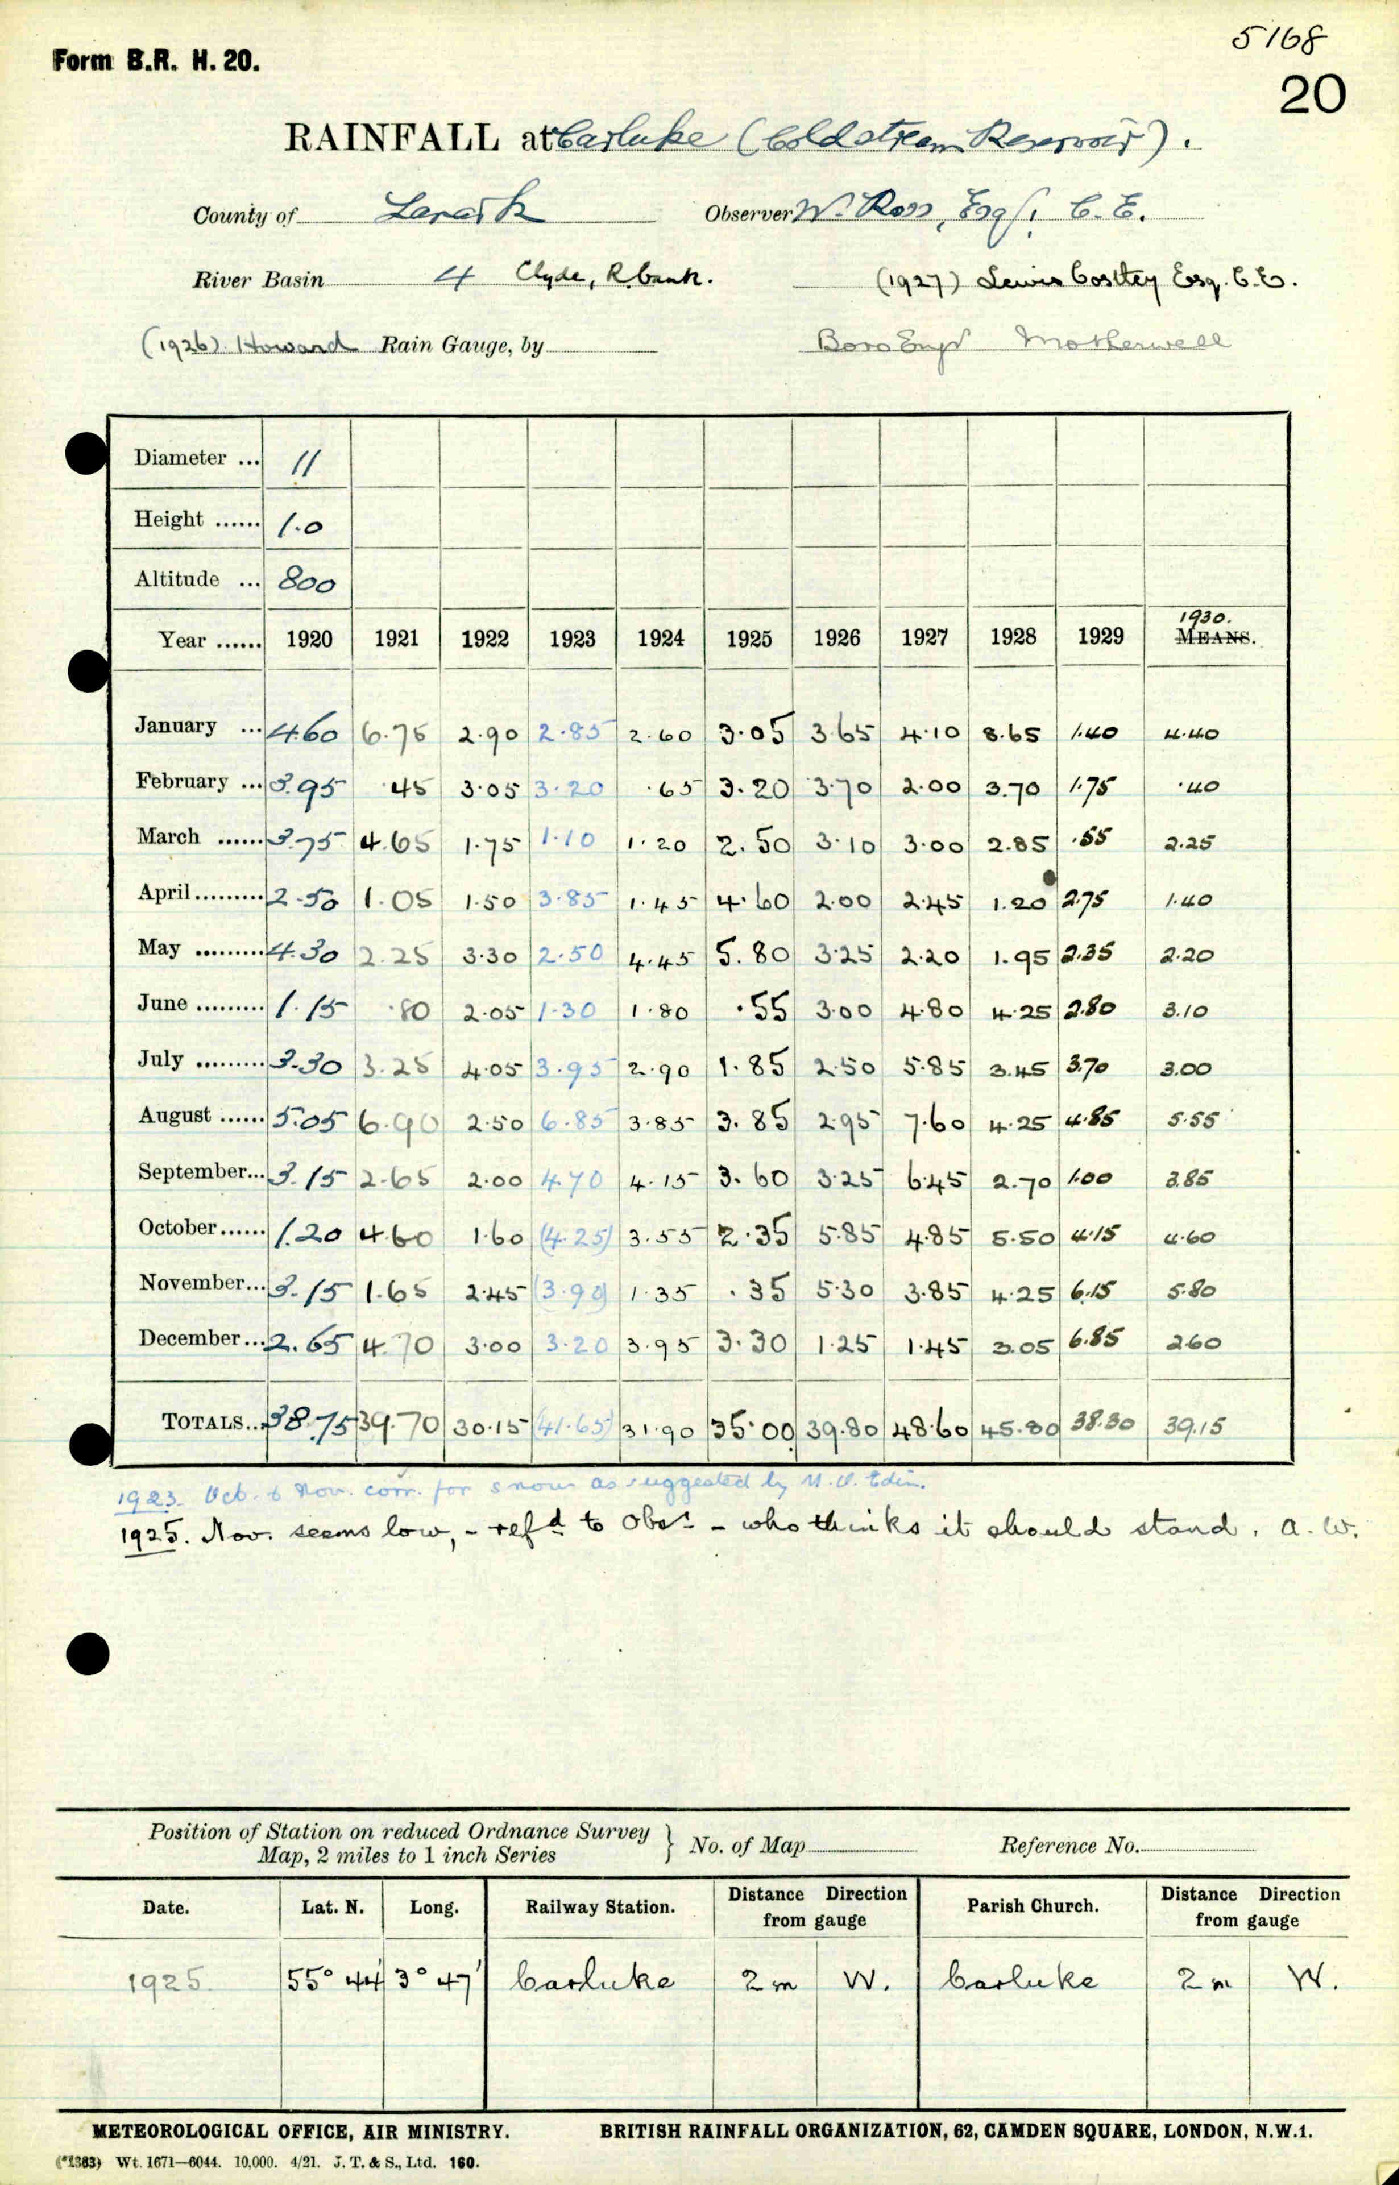 5168
Form B.R. H. 20.
20
RAINFALL at Carluke (Coldstream Reservoir).
County of Lanark Observer W. Ross, Esq., C.E.
River Basin 4 Clyde, R. bank. (1927) Lewis Costley Esq. C.E.
(1926) Howard Rain Gauge, by Boro Engr Motherwell
Diameter ... 11
Height ...... 1.0
Altitude ... 800
1930.
Year ...... 1920 1921 1922 1923 1924 1925 1926 1927 1928 1929 MEANS.
January ... 4.60 6.75 2.90 2.85 2.60 3.05 3.65 4.10 8.65 1.40 4.40
February ... 3.95 .45 3.05 3.20 .65 3.20 3.70 2.00 3.70 1.75 .40
March ...... 3.75 4.65 1.75 1.10 1.20 2.50 3.10 3.00 2.85 .55 2.25
April ......... 2.50 1.05 1.50 3.85 1.45 4.60 2.00 2.45 1.20 2.75 1.40
May ......... 4.30 2.25 3.30 2.50 4.45 5.80 3.25 2.20 1.95 2.35 2.20
June ......... 1.15 .80 2.05 1.30 1.80 .55 3.00 4.80 4.25 2.80 3.10
July ......... 3.30 3.25 4.05 3.95 2.90 1.85 2.50 5.85 3.45 3.70 3.00
August ...... 5.05 6.90 2.50 6.85 3.85 3.85 2.95 7.60 4.25 4.85 5.55
September... 3.15 2.65 2.00 4.70 4.15 3.60 3.25 6.45 2.70 1.00 3.85
October...... 1.20 4.60 1.60 (4.25) 3.55 2.35 5.85 4.85 5.50 4.15 4.60
November... 3.15 1.65 2.45 (3.90) 1.35 .35 5.30 3.85 4.25 6.15 5.80
December... 2.65 4.70 3.00 3.20 3.95 3.30 1.25 1.45 3.05 6.85 2.60
TOTALS... 38.75 39.70 30.15 (41.65) 31.90 35.00 39.80 48.60 45.80 38.30 39.15
1923. Oct. & Nov. corr. for snow as suggested by M.O. Edin.
1925. Nov. seems low, - refd to Obsr - who thinks it should stand. A.W.
Position of Station on reduced Ordnance Survey
Map, 2 miles to 1 inch Series } No. of Map Reference No.
Date. Lat. N. Long. Railway Station. Distance Direction from gauge Parish Church. Distance Direction from gauge
1925. 55° 44' 3° 47' Carluke 2 m W. Carluke 2 m W.
METEOROLOGICAL OFFICE, AIR MINISTRY. BRITISH RAINFALL ORGANIZATION, 62, CAMDEN SQUARE, LONDON, N.W.1.
(*1383) Wt. 1671—6044. 10,000. 4/21. J. T. & S., Ltd. 160.